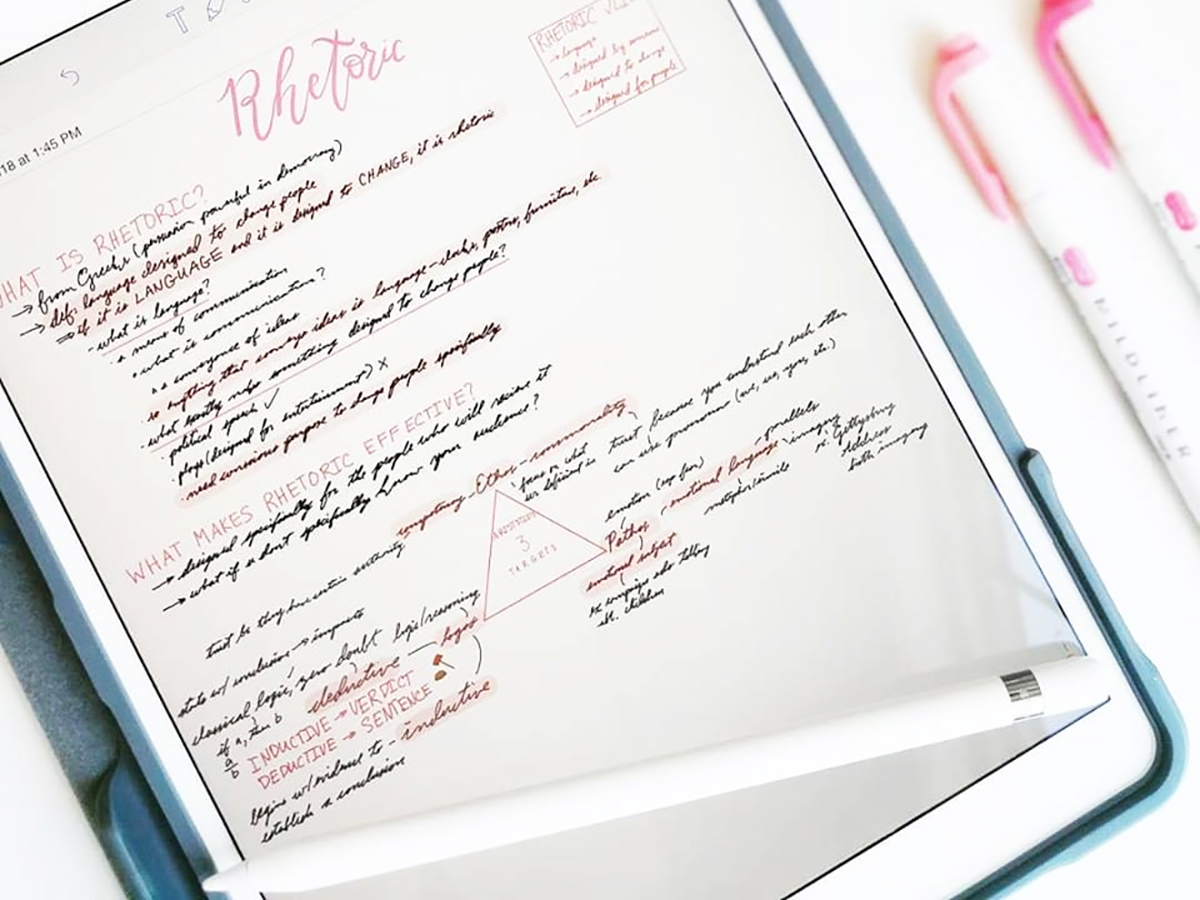 T
Rhetoric
RHETORIC
→ language
→ designed by someone
→ designed to change
→ designed for people
18 at 1:45 PM
WHAT IS RHETORIC?
→ from Greeks (persuasion powerful in democracy)
→ def: language designed to change people
⇒ if it is LANGUAGE and it is designed to CHANGE, it is rhetoric
- what is language?
• a means of communication
• what is communication?
a conveyance of ideas
so anything that conveys ideas is language - clocks, posters, furniture, etc.
- what exactly makes something designed to change people?
political speech ✓
plays (designed for entertainment) X
• need conscious purpose to change people specifically
WHAT MAKES RHETORIC EFFECTIVE?
→ designed specifically for the people who will receive it
→ what if u don't specifically know your audience?
competency - Ethos - commonality
focus on what
us defined is
trust because you understand each other
can use pronouns (we, us, you, etc.)
trust bc they have certain authority
ARISTOTLE'S
3
TARGETS
emotion (esp fear)
Pathos
emotional language
parallels
imagery
ex. Gettysburg
Address
birth imagery
metaphor/simile
emotional subject
ex. campaign ads talking
abt. children
starts w/ conclusion → imparts
classical logic, zero doubt
logic/reasoning
logos
if a, then b
a
b
deductive
INDUCTIVE → VERDICT
DEDUCTIVE → SENTENCE
begins w/ evidence to - inductive
establish a conclusion
MILDLINER